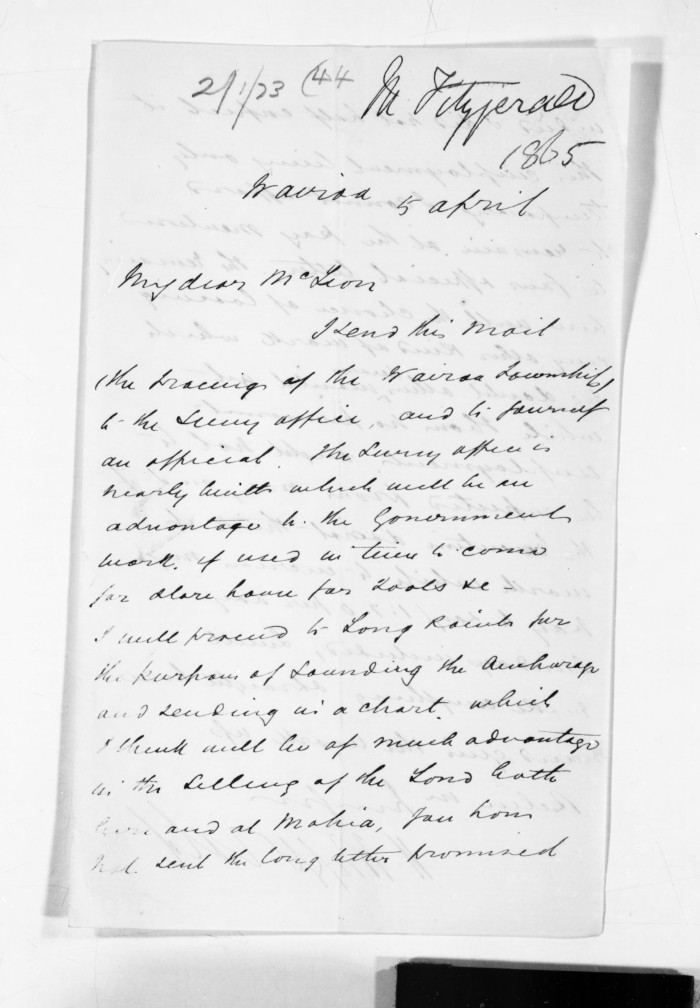 2/1/73 (44
M. Fitzgerald
1865
Wairoa 5 April
My dear McLean
I send this Mail
the tracings of the Wairoa Township,
to the Survey office, and to yourself
an official. The Survey office is
nearly built which will be an
advantage to the Government
work, if used in time to come
for store house for Tools &c -
I will proceed to Long Point for
the purpose of Sounding the Anchorage
and sending in a chart. which
I think will be of much advantage
in the selling of the Land both
here and at Mahia, You have
not sent the long letter promised